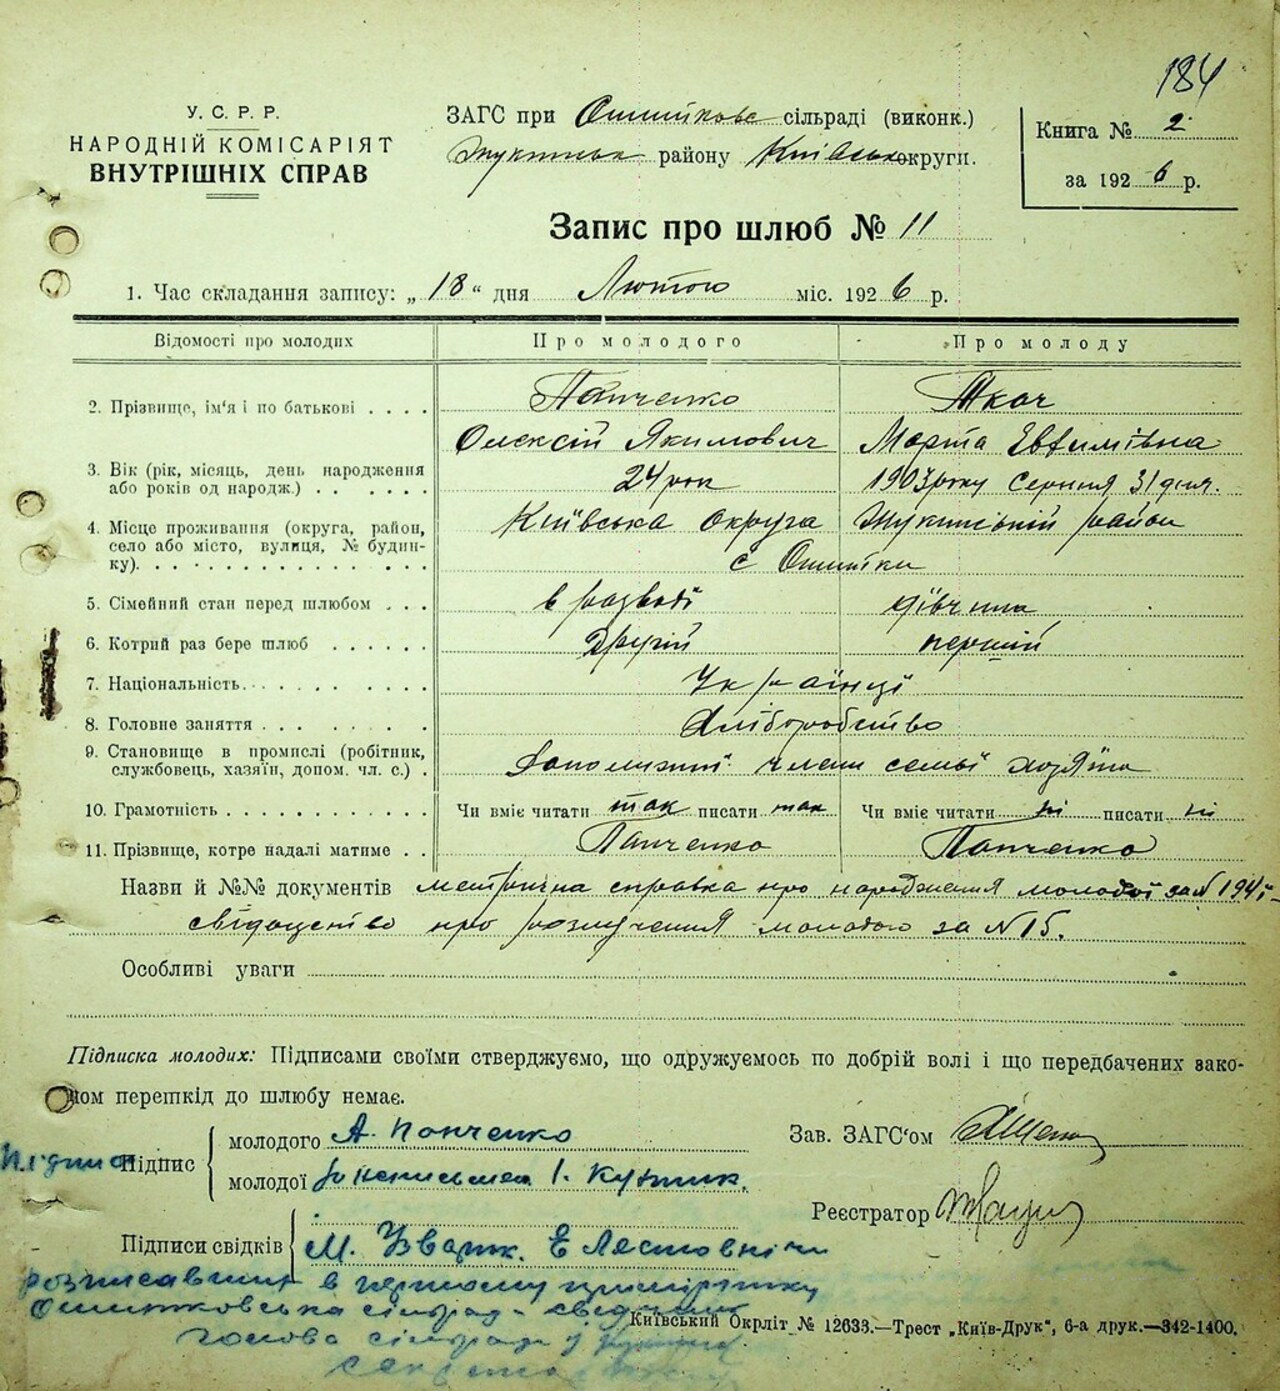 184
У. С. Р. Р.
НАРОДНІЙ КОМІСАРІЯТ
ВНУТРІШНІХ СПРАВ
ЗАГС при Ошитковс сільраді (виконк.)
району Київськ округи.
Книга № 2
за 1926 р.
Запис про шлюб № 11
1. Час складання запису: „18“ дня Лютого міс. 1926 р.
Відомості про молодих Про молодого Про молоду
2. Прізвище, ім'я і по батькові . . . . Панченко Ткач
Олексій Якимович Марта Евтимівна
3. Вік (рік, місяць, день народження
або років од народж.) . . . . . . 24 рок 1903 року Серпня 31 дня.
4. Місце проживання (округа, район, Київська округа Жукинській район
село або місто, вулиця, № будин-
ку). . . . . . . . . . . . . . с Ошитки
5. Сімейний стан перед шлюбом . . . в розводі дівчина
6. Котрий раз бере шлюб . . . . . . Другій первий
7. Національність. . . . . . . . . . Українці
8. Головне заняття . . . . . . . . Хліборобство
9. Становище в промислі (робітник,
службовець, хазяїн, допом. чл. с.) . члени семьї хозяїна
10. Грамотність . . . . . . . . . . . . Чи вміє читати так писати так Чи вміє читати ні писати ні
11. Прізвище, котре надалі матиме . . Панченко Панченко
Назви й №№ документів метрична справка про народження молодої за № 194
свідоцтво про розлучення молодого за № 15.
Особливі уваги
Підписка молодих: Підписами своїми стверджуємо, що одружуємось по добрій волі і що передбачених зако-
ном перешкід до шлюбу немає.
Підпис
молодого А. Панченко
молодої І.
Зав. ЗАГС'ом
Реєстратор
Підписи свідків М.
в
сільрад
голова сільради
Київський Окрліт № 12633.—Трест „Київ-Друк“, 6-а друк.—342-1400.